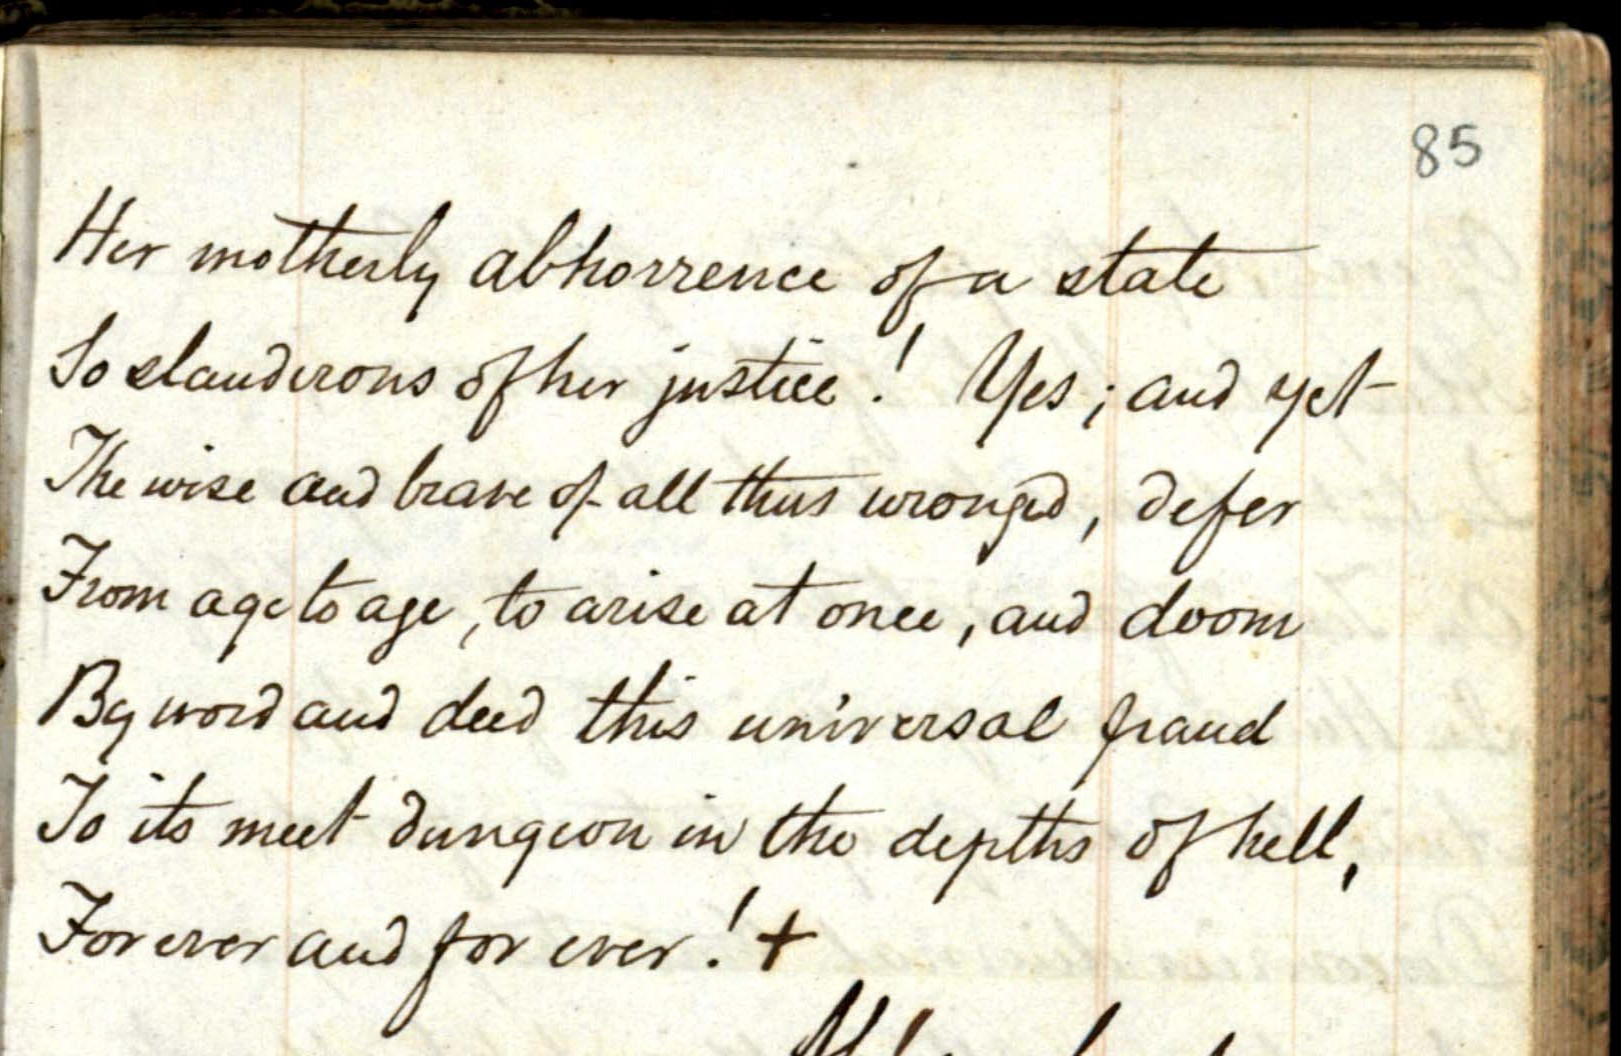 85
Her motherly abhorrence of a state
So slanderous of her justice! Yes; and yet
The wise and brave of all thus wronged, defer
From age to age, to arise at once, and doom
By word and deed this universal fraud
To its meet dungeon in the depths of hell,
For ever and for ever! +